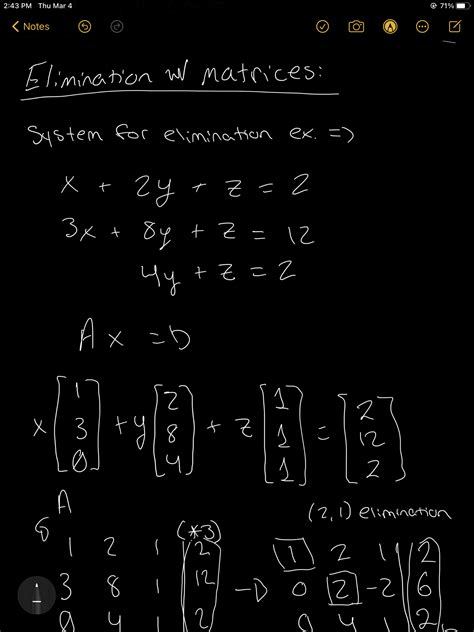 2:43 PM Thu Mar 4 71%
Notes
Elimination w/ matrices:
System for elimination ex. =>
x + 2y + z = 2
3x + 8y + z = 12
4y + z = 2
Ax = b
x [1 3 0] + y [2 8 4] + z [1 1 1] = [2 12 2]
A
(*3)
(2,1) elimination
1 2 1 | 2 1 2 1 | 2
3 8 1 | 12 → 0 2 -2 | 6
0 4 1 | 2 0 4 1 | 2